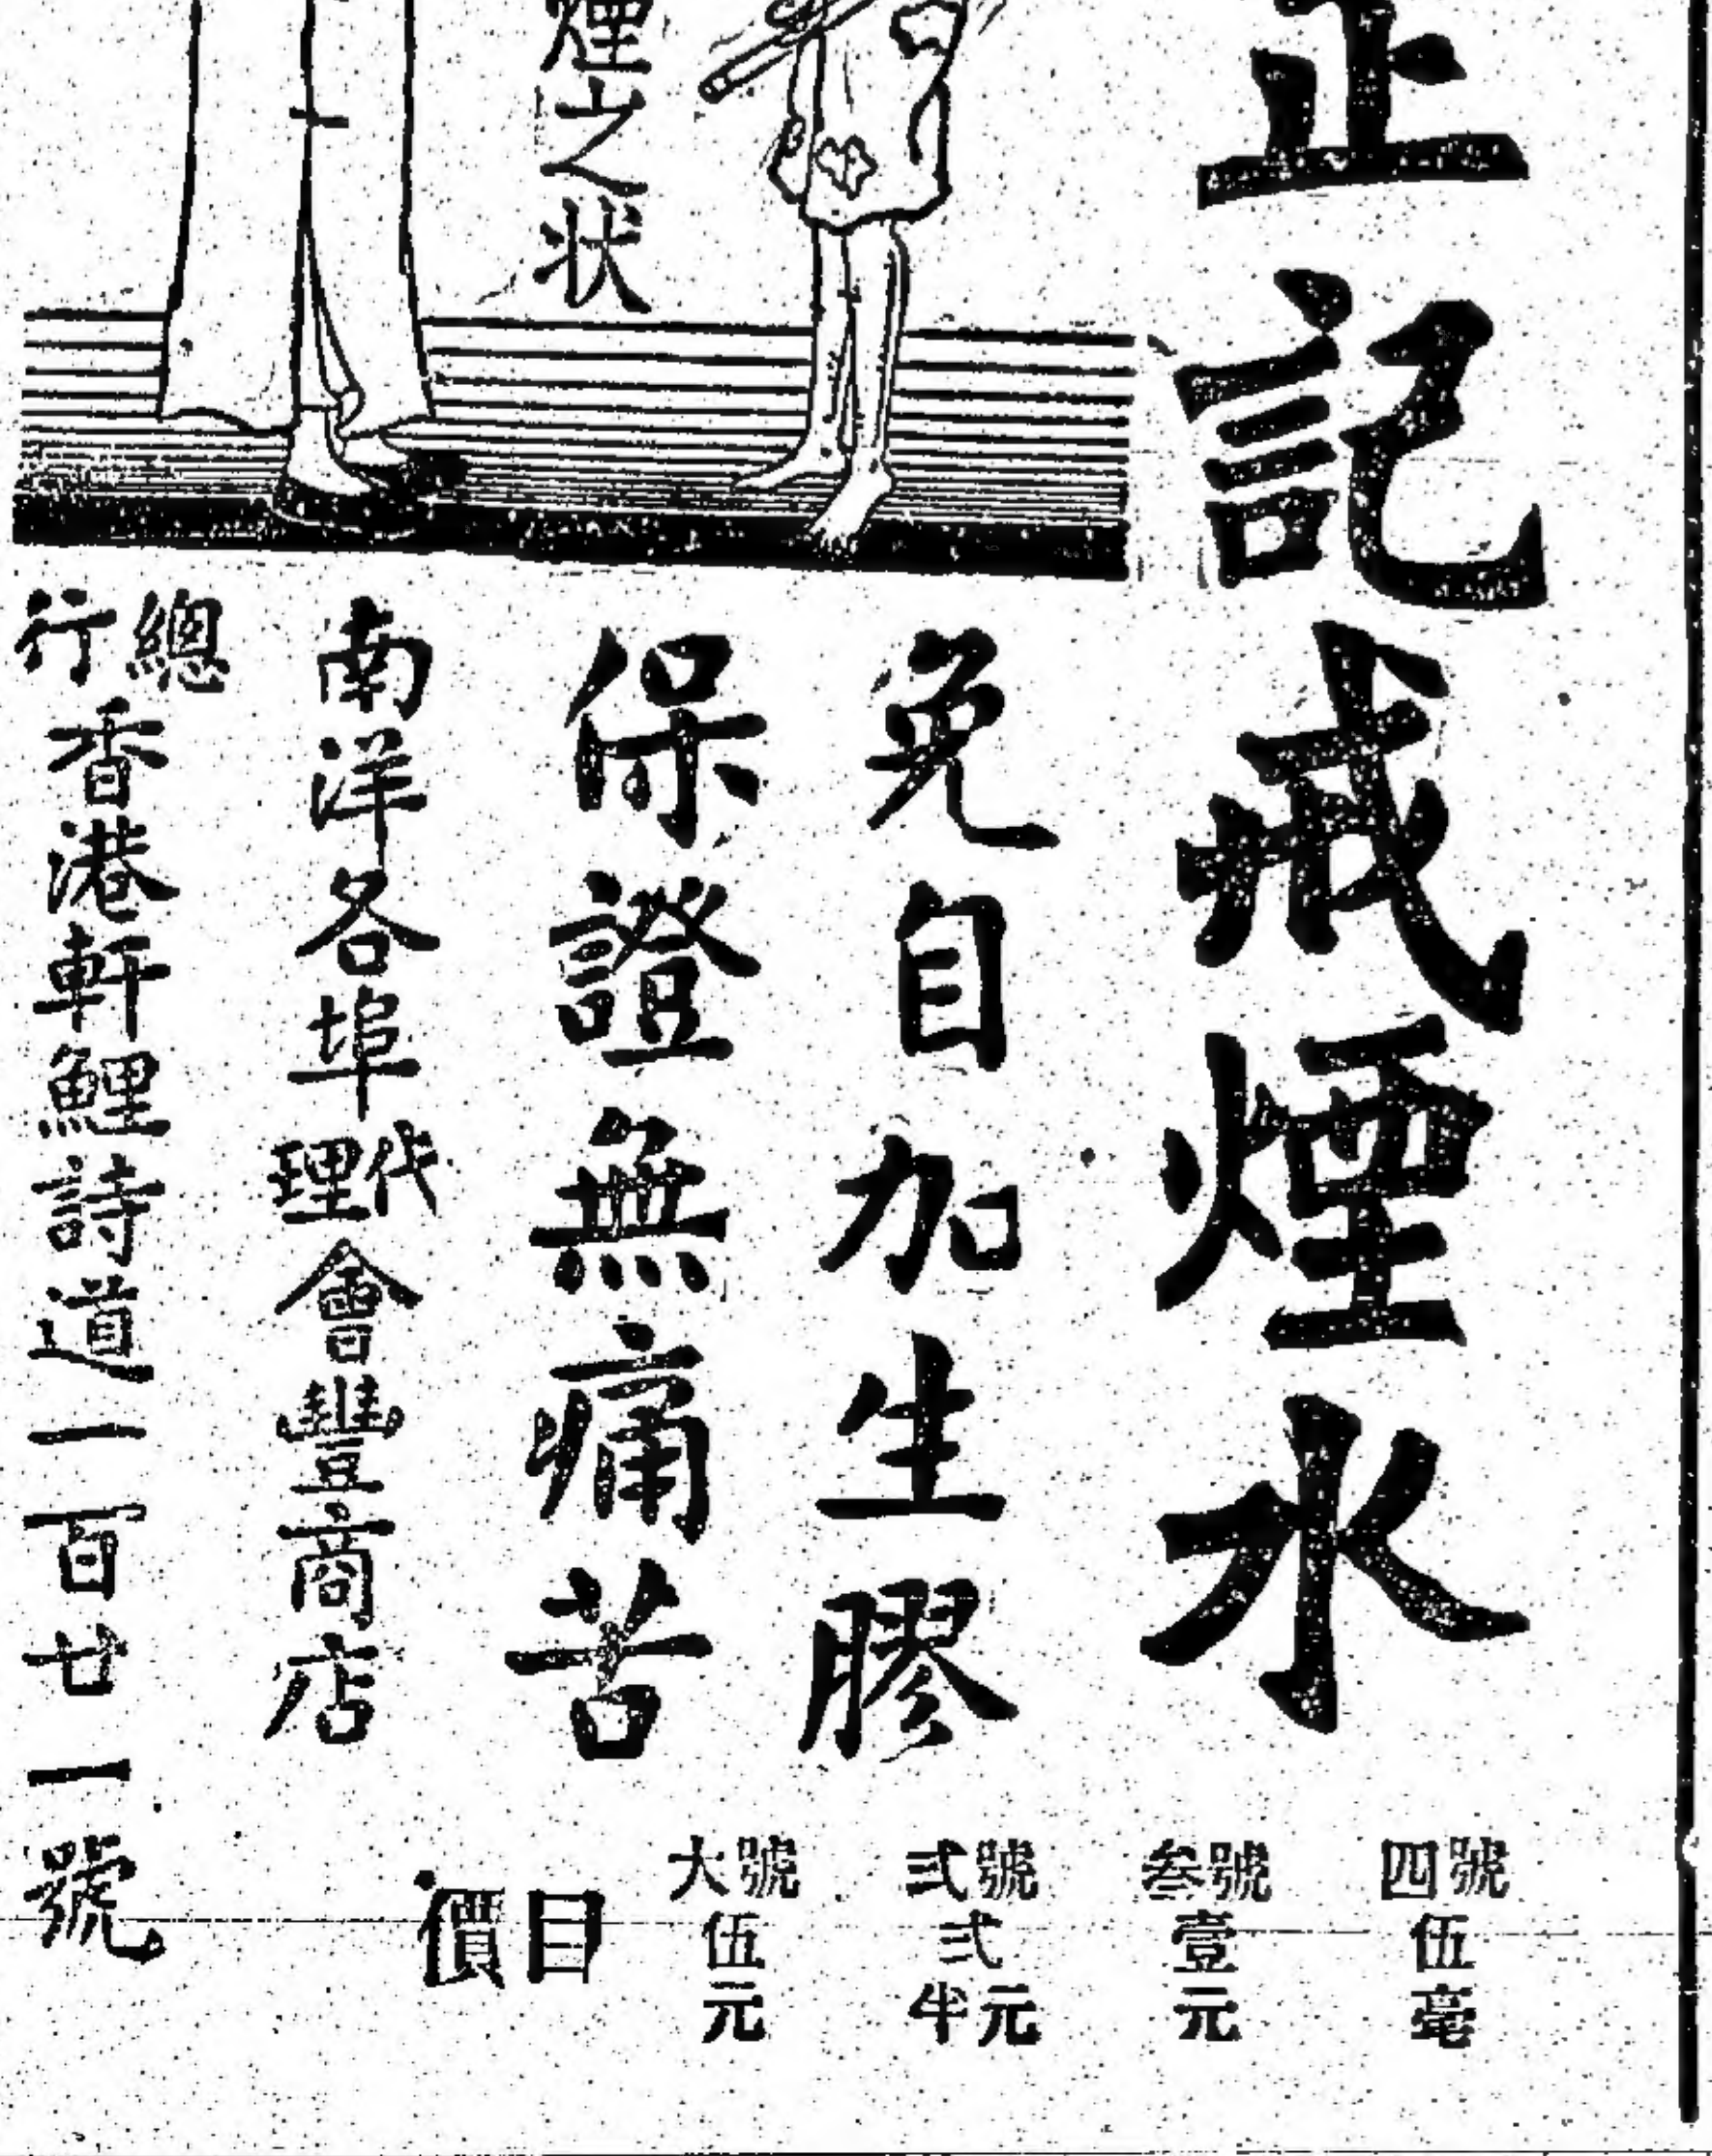 正記戒煙水
免自加生膠
保證無痛苦
煙之狀
南洋各埠代理會豐商店
總行香港軒鯉詩道一百廿一號
四號伍毫
叁號壹元
弍號弍元半
大號伍元
目價